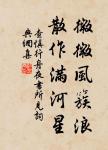 微微風簇浪
散作滿河星
查慎行舟夜書所見詞
興綱集